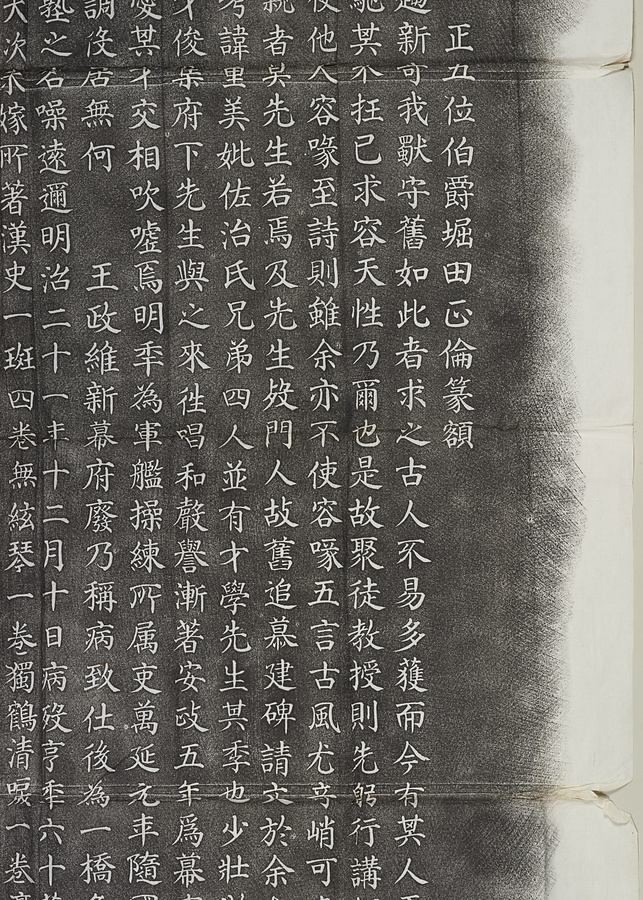 正五位伯爵堀田正倫篆額
新奇我獸守舊如此者求之古人不易多獲而今有其人
馳其不抂已求容天性乃爾也是故聚徒教授則先躬行講
他人容喙至詩則雖余亦不使容喙五言古風尤奇峭可
就者其先生若焉及先生歿門人故舊追慕建碑請文於余
考諱里美妣佐治氏兄弟四人並有才學先生其季也少壯
才俊集府下先生與之來往唱和聲譽漸著安政五年爲幕
愛其才交相吹噓焉明年為軍艦操練所属吏萬延元年隨
調役居無何 王政維新幕府廢乃稱病致仕後為一橋
塾之名噪遠邇明治二十一年十二月十日病歿享年六十
大次未嫁所著漢史一斑四卷無絃琴一卷獨鶴清唳一卷